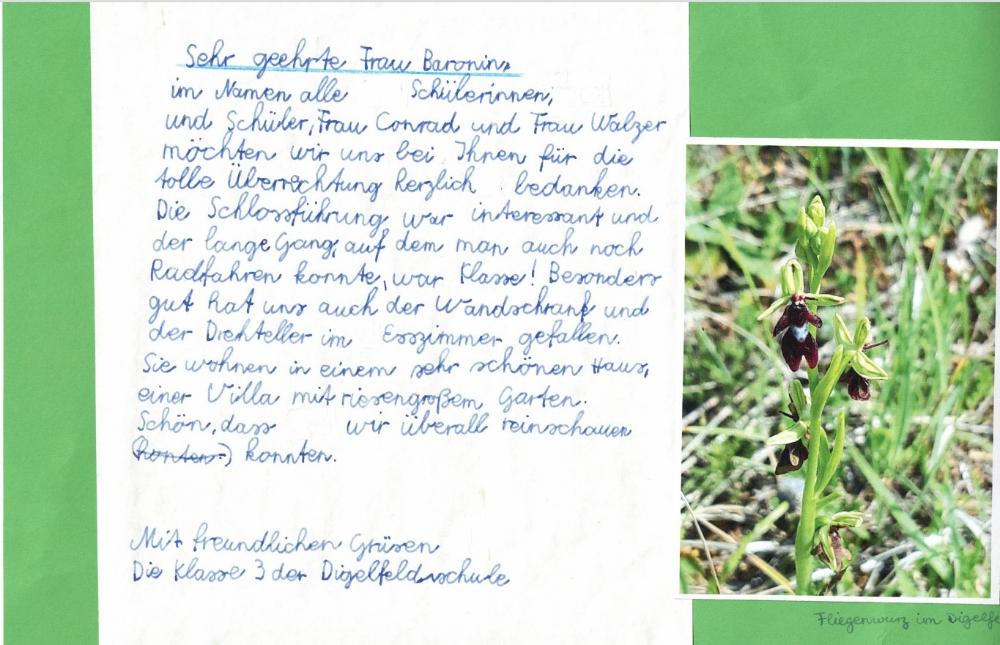 Sehr geehrte Frau Baronin,
im Namen alle Schülerinnen,
und Schüler, Frau Conrad und Frau Walzer
möchten wir uns bei Ihnen für die
tolle Überrechtung herzlich bedanken.
Die Schlossführung war interessant und
der lange Gang, auf dem man auch noch
Radfahren konnte, war Klasse! Besonders
gut hat uns auch der Wandschrank und
der Drehteller im Esszimmer gefallen.
Sie wohnen in einem sehr schönen Haus,
einer Villa mit riesengroßem Garten.
Schön, dass wir überall reinschauen
konnten.
Mit freundlichen Grüsen
Die Klasse 3 der Digelfeldschule
Fliegenwurz im Digelfe